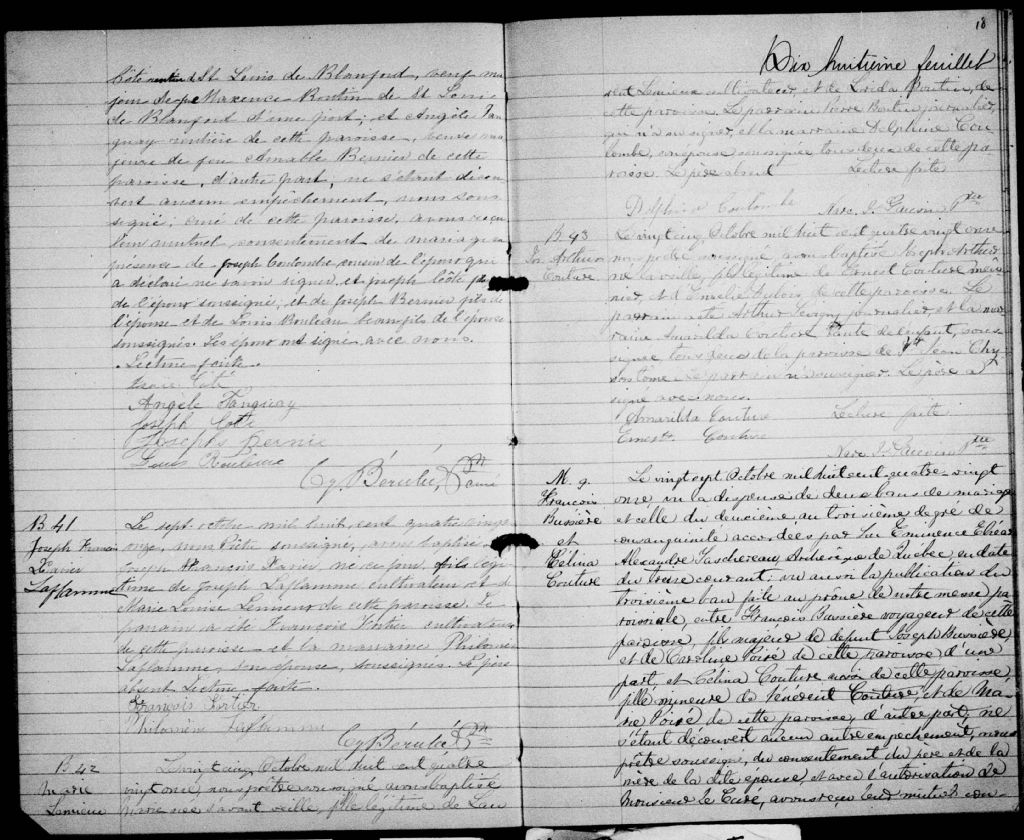 Côté rentier de St Louis de Blanford, veuf ma
jeur de feue Maxence Boutin de St Louis
de Blanford d'une part; et Angèle Tan
guay rentière de cette paroisse, veuve ma
jeure de feu Amable Bernier de cette
paroisse, d'autre part, ne s'étant décou
vert aucun empêchement, nous sous
signé, curé de cette paroisse, avons reçu
leur mutuel consentement de mariage en
présence de Joseph Coulombe cousin de l'époux qui
a déclaré ne savoir signer, et Joseph Côté fils
de l'époux soussigné, et de Joseph Bernier fils de
l'épouse et de Louis Rouleau beau-fils de l'épouse
soussignés. Les époux ont signé avec nous.
Lecture faite.
Côté
Angele Tanguay
Joseph Coté
Josephs Bernie
Louis Rouleau
Cg. Bérubé, Ptr Curé
B 41
Joseph Francois
Xavier
Laflamme
Le sept octobre mil huit cent quatre vingt
onze, nous Prêtre soussigné, avons baptisé
Joseph François Xavier, né ce jour, fils légi
time de Joseph Laflamme cultivateur et de
Marie Louise Lemieux de cette paroisse. Le
parrain a été François Fortier cultivateur
de cette paroisse et la marraine Philomène
Laflamme, son épouse, soussignés. Le père
absent. Lecture faite.
François Fortier
Philomène Laflamme
Cg Bérubé Ptr
B 42
Marie
Lemieux
Le vingt cinq Octobre mil huit cent quatre
vingt onze, nous prêtre soussigné avons baptisé
Marie née l'avant veille, fille légitime de Lau
18
Dix huitième feuillet
rent Lemieux cultivateur, et de Boutin, de
cette paroisse. Le parrain Pierre Boutin journalier,
qui n'a su signer, et la marraine Delphine Cou
lombe, son épouse soussignée tous deux de cette pa-
roisse. Le père absent Lecture faite
Delphine Coulombe
Narc. J. Ptre
B 43
Jos. Arthur
Couture
Le vingt cinq Octobre mil huit cent quatre vingt onze
nous prêtre soussigné avons baptisé Joseph Arthur
né la veille, fils légitime de Ernest Couture meu-
nier, et d'Emélie Dubois de cette paroisse. Le
parrain a été Arthur journalier, et la mar
raine Amarilda Couture Tante de l'enfant, sous-
signée tous deux de la paroisse de St Jean Chry
sostôme. Le parrain n'a su signer. Le père a
signé avec nous.
Amarilda Couture Lecture faite
Ernest Couture
Narc. J. Ptre
M. 9.
François
Bussière
et
Célina
Couture
Le vingt sept Octobre mil huit cent quatre-vingt
onze vu la dispense de deux bans de mariage
et celle du deuxième au troisième degré de
consanguinité accordées par Son Eminence Elzéar
Alexandre Taschereau Archevêque de Québec en date
du treize courant; vu aussi la publication du
troisième ban faite au prône de notre messe pa
roissiale, entre François Bussière voyageur de cette
paroisse, fils majeur de défunt Joseph Bussière,
et de Caroline Poiré de cette paroisse d'une
part, et Célina Couture aussi de cette paroisse,
fille mineure de Vénérent Couture, et de Ma-
rie Poiré de cette paroisse, d'autre part; ne
s'étant découvert aucun autre empêchement, nous
prêtre soussigné, du consentement du père et de la
mère de la dite épouse, et avec l'autorisation de
Monsieur le Curé, avons reçu leur mutuel con-